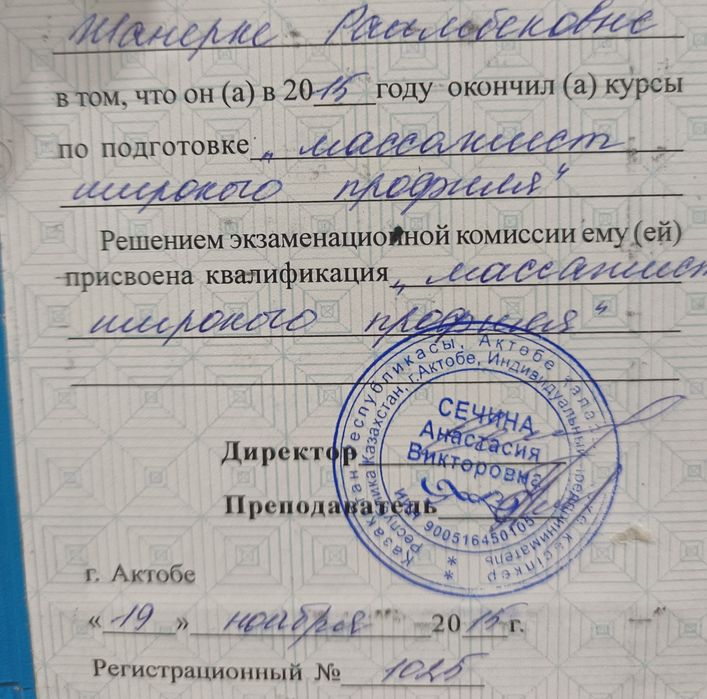 Жанерке Раимбековне
в том, что он (а) в 2015 году окончил (а) курсы
по подготовке „массажист
широкого профиля“
Решением экзаменационной комиссии ему (ей)
присвоена квалификация „массажист
широкого профиля“
Қазақстан Республикасы, Ақтөбе қаласы
Жеке кәсіпкер
Республика Казахстан, г.Актобе, Индивидуальный предприниматель
СЕЧИНА
Анастасия
Викторовна
ИИН 900516450105
Директор
Преподаватель
г. Актобе
«19» ноября 2015г.
Регистрационный № 1025